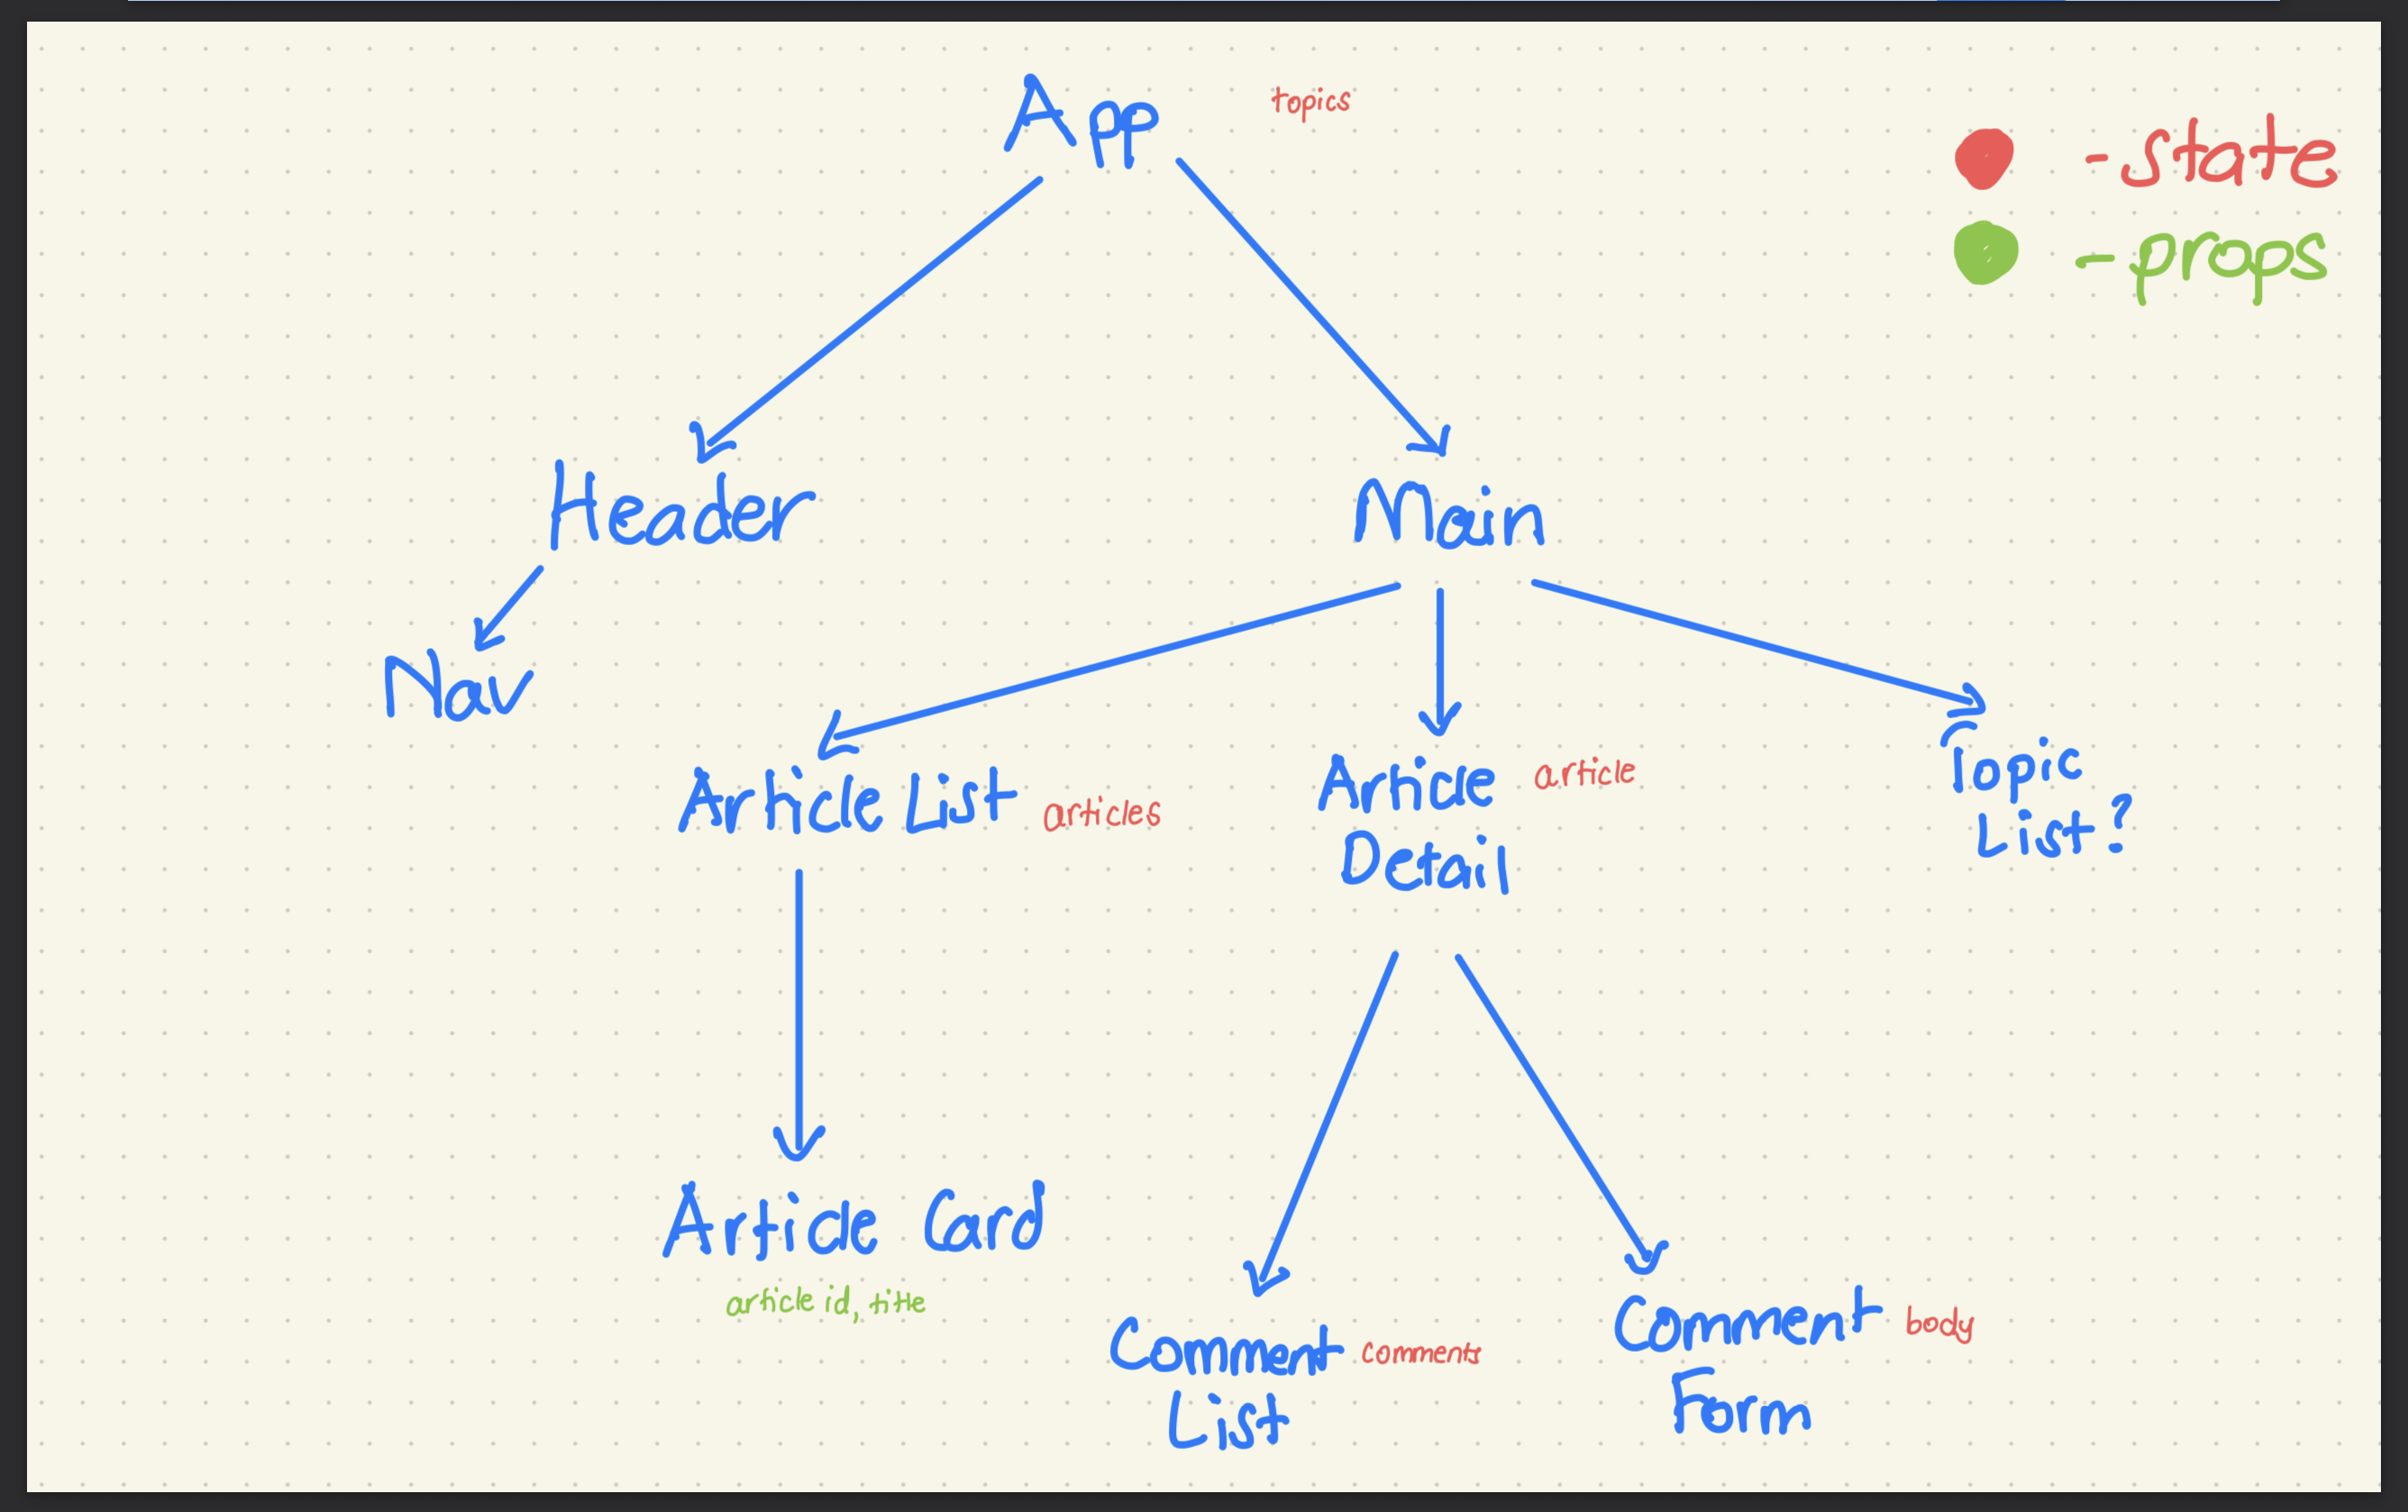 App
topics
- state
- props
Header
Main
Nav
Article List
articles
Article
Detail
article
Topic
List?
Article Card
article id, title
Comment
List
comments
Comment
Form
body